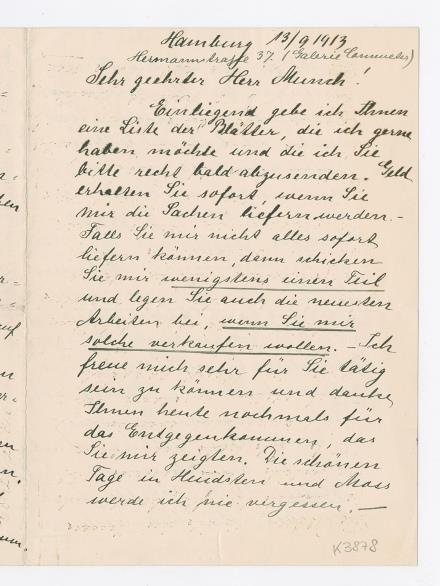 Hamburg 13/9 1913
Hermannstrasse 37. (Galerie Commeter)
Sehr geehrter Herr Munch!
Einliegend gebe ich Ihnen
eine Liste der Blätter, die ich gerne
haben möchte und die ich Sie
bitte recht bald abzusenden. Geld
erhalten Sie sofort, wenn Sie
mir die Sachen liefern werden. –
Falls Sie mir nicht alles sofort
liefern können, dann schicken
Sie mir wenigstens einen Teil
und legen Sie auch die neuesten
Arbeiten bei, wenn Sie mir
solche verkaufen wollen. – Ich
freue mich sehr für Sie tätig
sein zu können und danke
Ihnen heute nochmals für
das Entgegenkommen, das
Sie mir zeigten. Die schönen
Tage in und Moss
werde ich nie vergessen. –
K3878